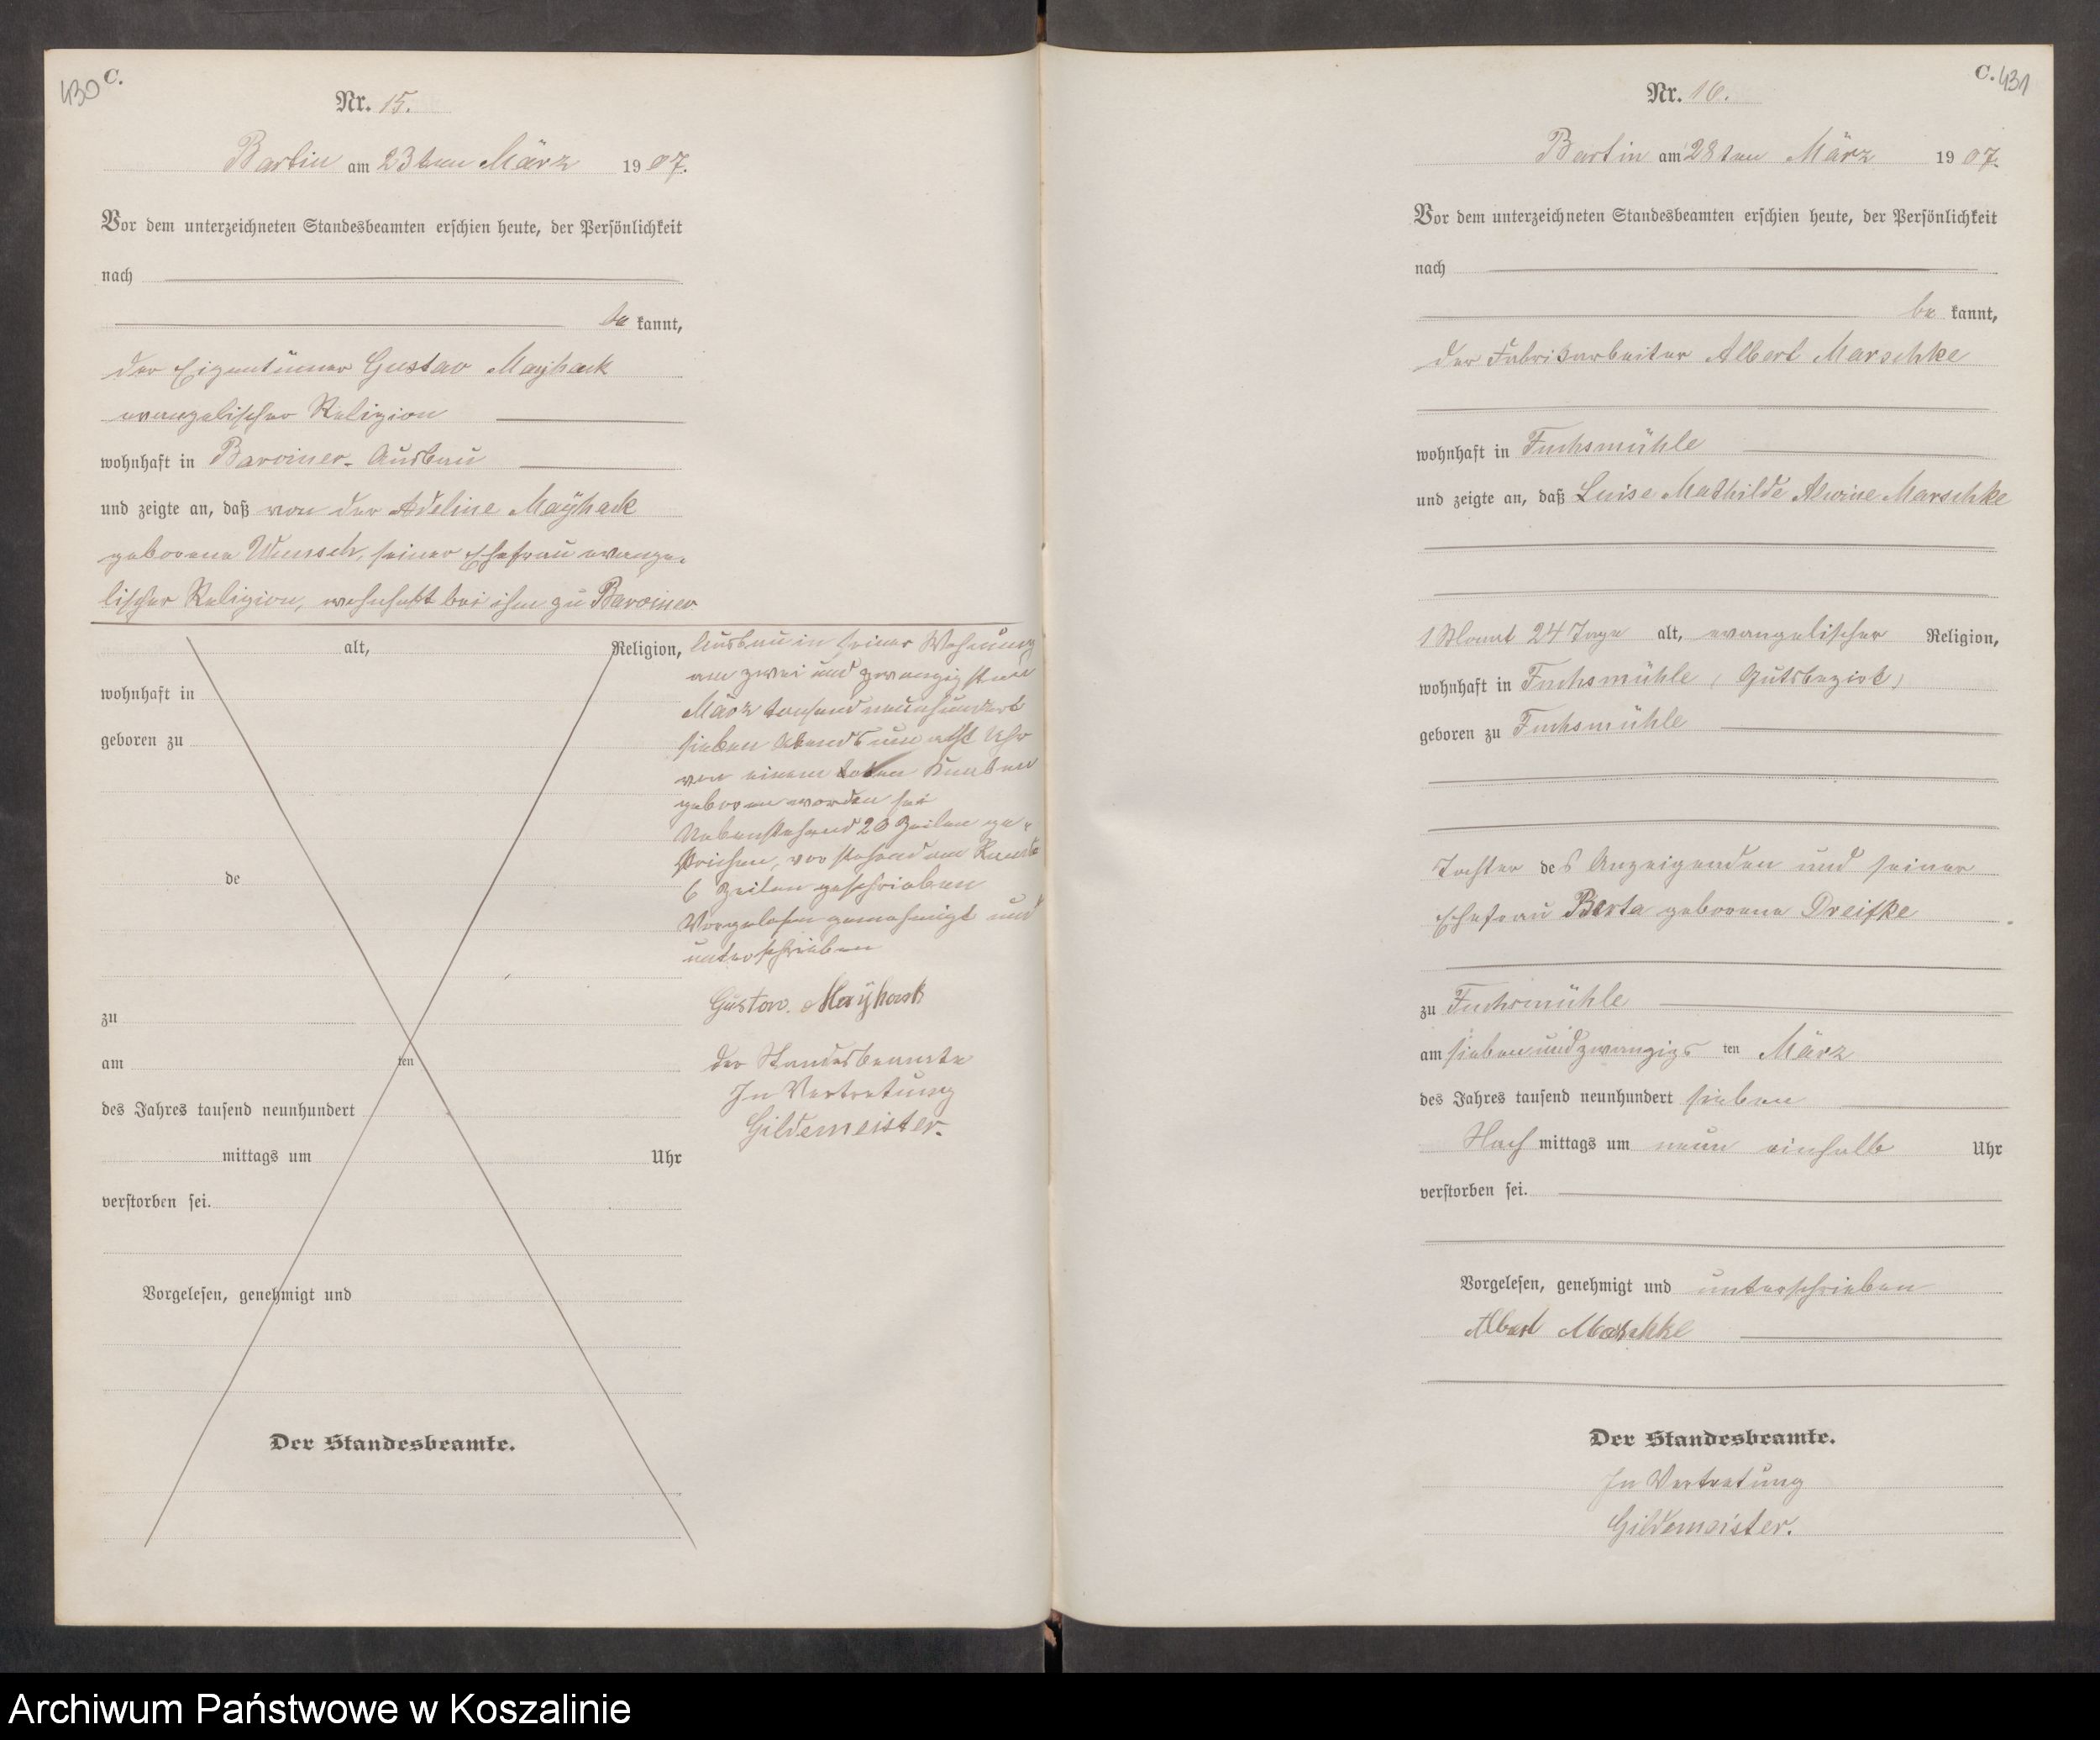 430 C.
Nr. 15.
Bartin am 23ten März 1907.
Vor dem unterzeichneten Standesbeamten erschien heute, der Persönlichkeit
nach
be kannt,
der Eigentümer Gustav Mayhack
evangelischer Religion
wohnhaft in Barviner-Ausbau
und zeigte an, daß von der Adeline Mayhack
geborene Wunsch, seiner Ehefrau evange-
lischer Religion, wohnhaft bei ihm zu Barviner
alt, Religion,
wohnhaft in
geboren zu
de
zu
am ten
des Jahres tausend neunhundert
mittags um Uhr
verstorben sei.
Vorgelesen, genehmigt und
Der Standesbeamte.
Ausbau in seiner Wohnung
am zwei und zwanzigsten
März tausend neunhundert
sieben Abends um acht Uhr
von einem toten Knaben
geboren worden sei
Nebenstehend 20 Zeilen ge-
strichen, vorstehend am Rande
6 Zeilen geschrieben
Vorgelesen genehmigt und
unterschrieben
Gustav. Mayhack
der Standesbeamte
In Vertretung
Gildemeister.
C. 431
Nr. 16.
Bartin am 28ten März 1907.
Vor dem unterzeichneten Standesbeamten erschien heute, der Persönlichkeit
nach
be kannt,
der Fabrikarbeiter Albert Marschke
wohnhaft in Fuchsmühle
und zeigte an, daß Luise Mathilde Alwine Marschke
1 Monat 24 Tage alt, evangelischer Religion,
wohnhaft in Fuchsmühle (Gutsbezirk)
geboren zu Fuchsmühle
Tochter des Anzeigenden und seiner
Ehefrau Berta geborene Dreifke
zu Fuchsmühle
am siebenundzwanzigs ten März
des Jahres tausend neunhundert sieben
Nach mittags um neun einhalb Uhr
verstorben sei.
Vorgelesen, genehmigt und unterschrieben
Albert Marschke
Der Standesbeamte.
In Vertretung
Gildemeister.
Archiwum Państwowe w Koszalinie